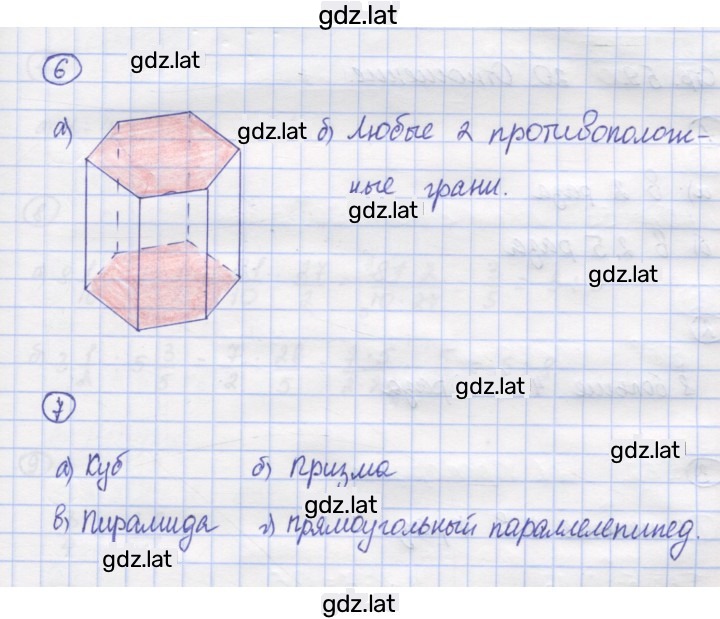 gdz.lat
6
gdz.lat
а) gdz.lat б) Любые 2 противополож-
ные грани.
gdz.lat
gdz.lat
gdz.lat
7
gdz.lat
а) Куб б) Призма
gdz.lat
в) Пирамида г) прямоугольный параллелепипед.
gdz.lat
gdz.lat